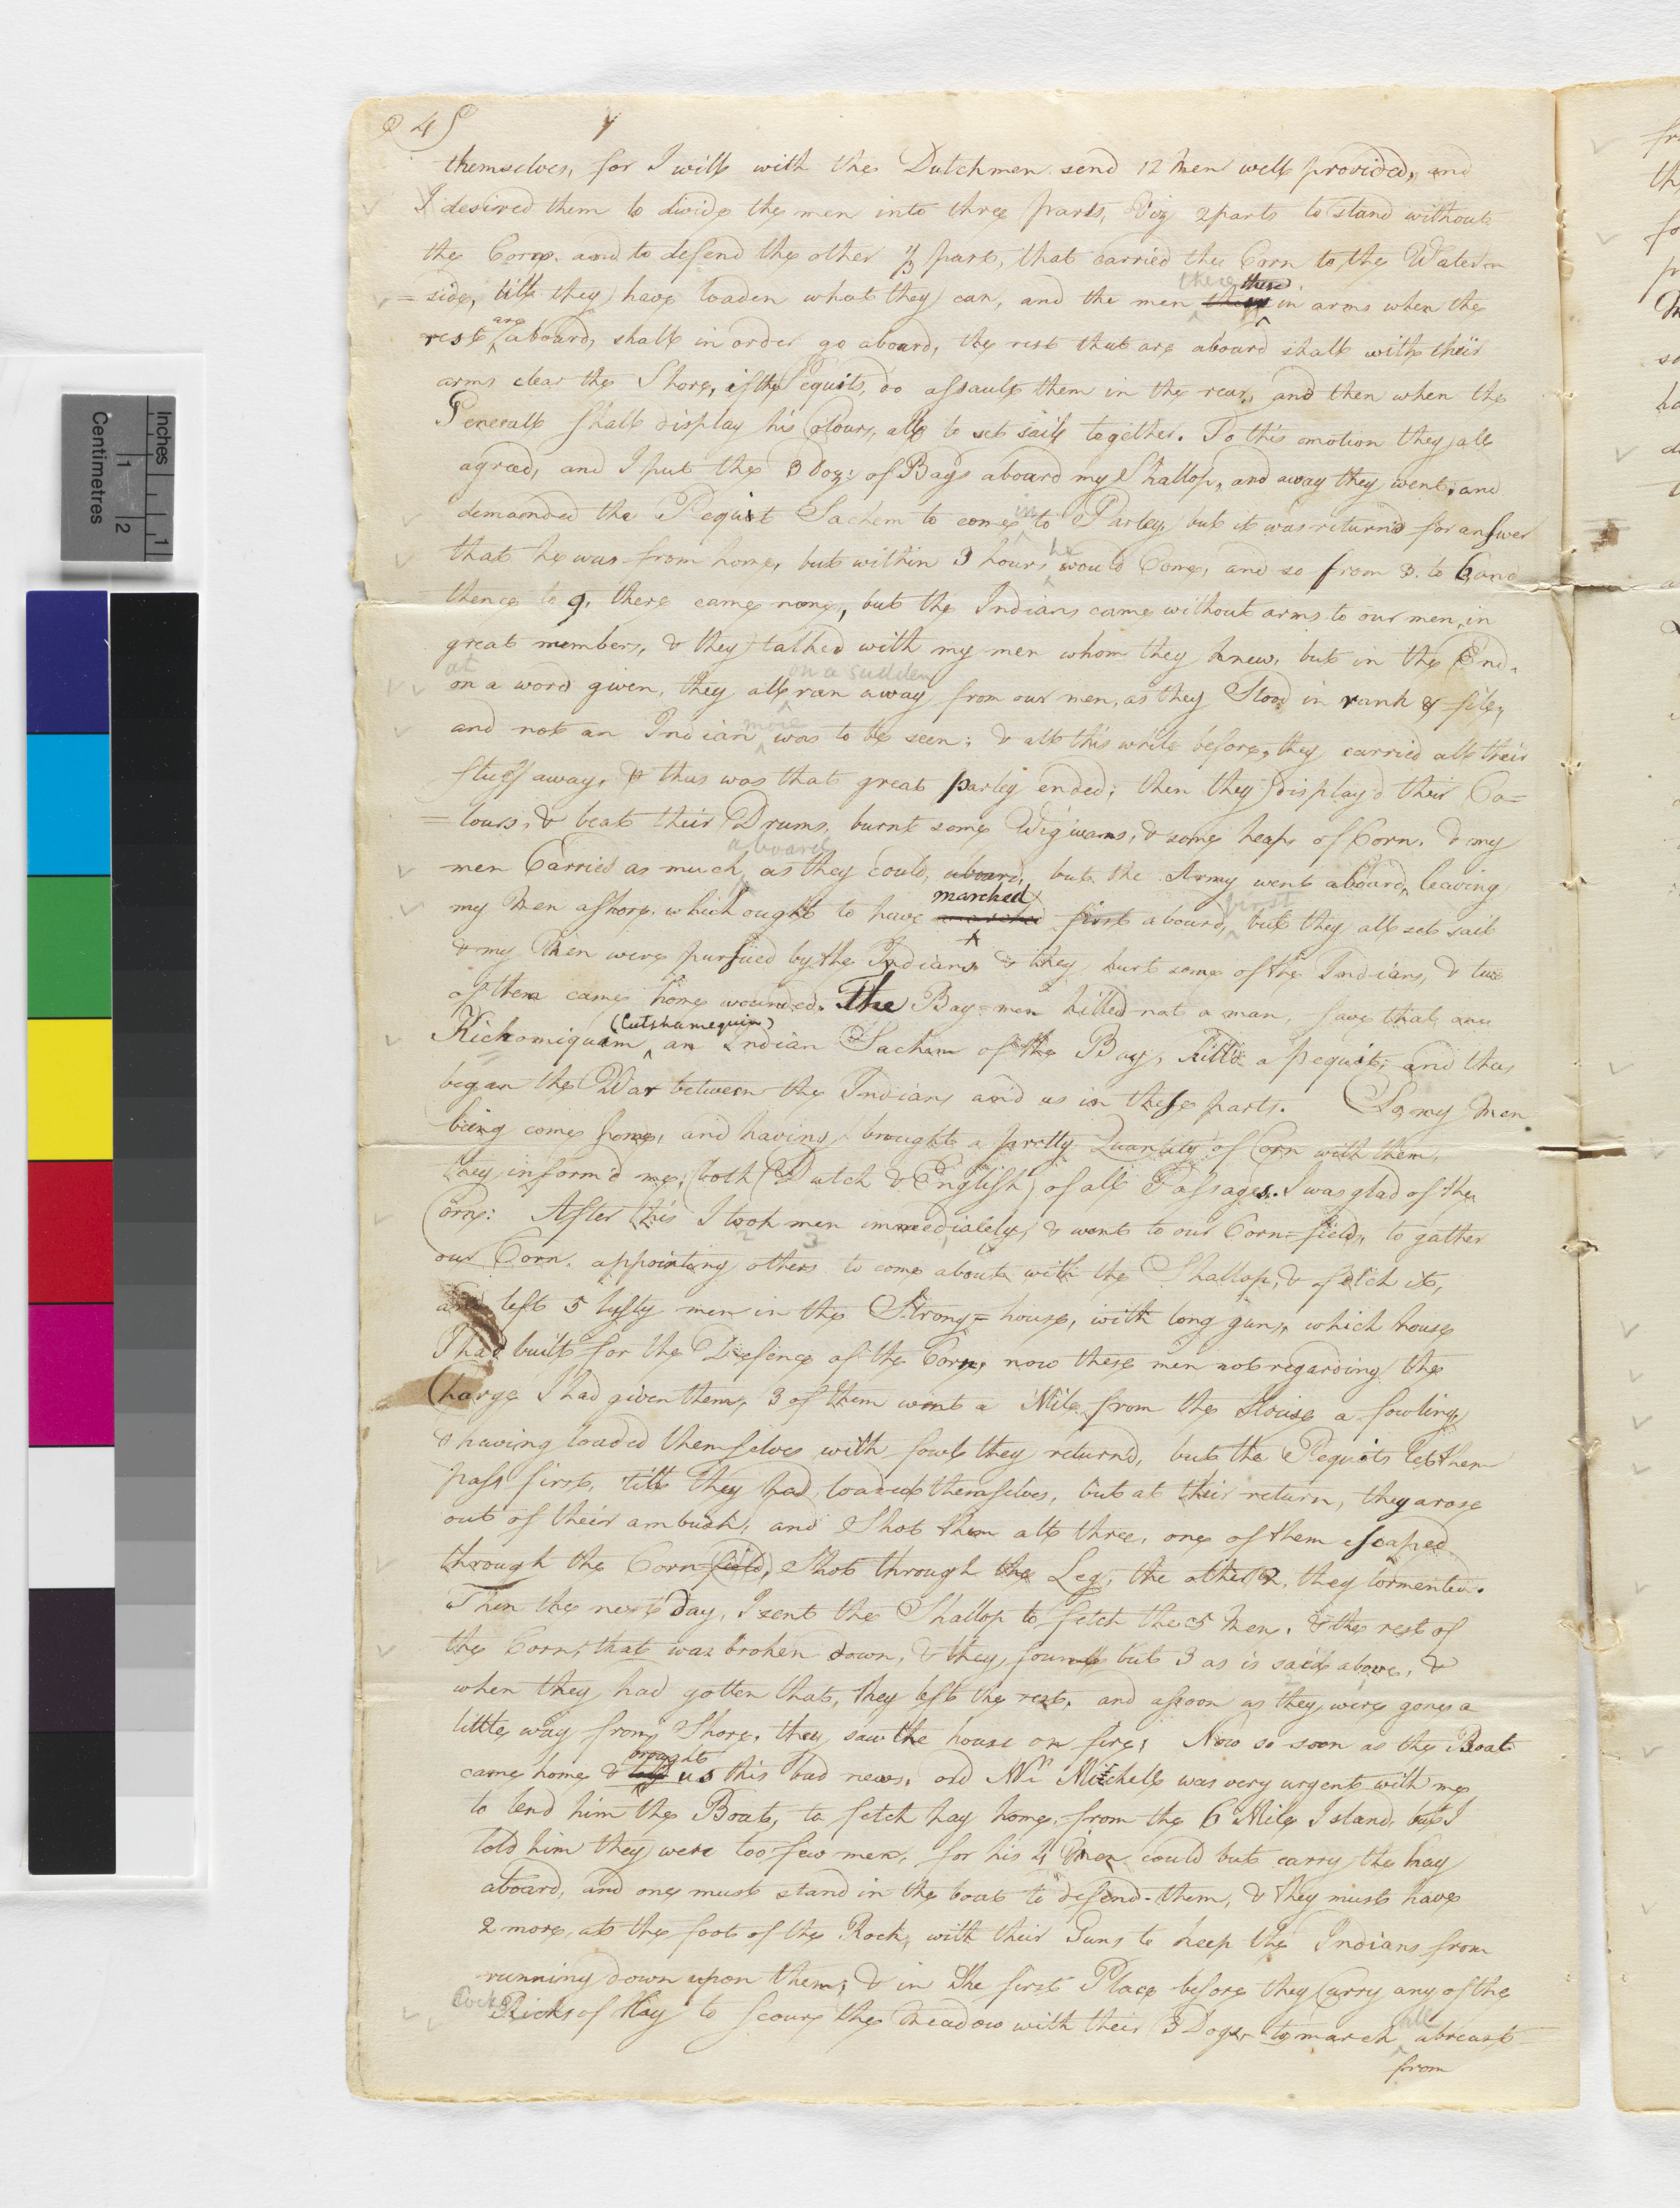 4
themselves, for I will with the Dutchmen send 12 Men well provided, and
I desired them to divide the men into three parts, Viz 2 parts to stand without
the Corn, and to defend the other 1/3 part, that carried the Corn to the Water
= side, till they have loaden what they can, and the men there in arms when the
rest are aboard, shall in order go aboard, the rest that are aboard shall with their
arms clear the Shore, if the Pequits, do assault them in the rear, and then when the
Generall shall display his Colours, all to set sail together. To this motion they all
agreed, and I put the 3 Doz: of Bags aboard my Shallop, and away they went, and
demanded the Pequit Sachem to come in to Parley, but it was return'd for answer
that he was from home, but within 3 hours he would Come, and so from 3. to 6, and
thence to 9. there came none, but the Indians came without arms to our men, in
great members, & they talked with my men whom they knew, but in the End,
at on a word given, they all on a sudden ran away from our men, as they Stood in rank & file,
and not an Indian more was to be seen: & all this while before, they carried all their
stuff away, & thus was that great parley ended; then they display'd their Co=
= lours, & beat their Drums, burnt some Wigwams, & some heaps of Corn, & my
men Carried as much aboard as they could, aboard, but the Army went aboard, leaving
my Men ashore, which ought to have marched first aboard, first but they all set sail
& my Men were pursued by the Indians & they hurt some of the Indians, & two
of them came home wounded. The Bay=men killed not a man, save that one
Kichomiquim (Cutshamequin), an Indian Sachem of the Bay, kill'd a pequit; and thus
began the War between the Indians and us in these parts. So my Men
being come home, and having brought a pretty Quantity of Corn with them,
they inform'd me, (both Dutch & English) of all Passages. I was glad of the
Corn: After this I took men immediately, & went to our Corn=field, to gather
our Corn, appointing others to come about with the Shallop, & fetch it,
and left 5 lusty men in the Strong=house, with long guns, which house
I had built for the Defence of the Corn, now these men not regarding the
Charge I had given them, 3 of them went a Mile from the House a fowling,
& having loaded themselves with fowl they return'd, but the Pequits let them
pass first, till they had loaded themselves, but at their return, they arose
out of their ambush, and Shot them all three, one of them escaped
through the Corn field, Shot through the Leg, the other 2, they tormented.
Then the next Day, I sent the Shallop to fetch the 5 Men, & the rest of
the Corn, that was broken down, & they found but 3 as is said above, &
when they had gotten that, they left the rest, and assoon as they were gone a
little way from Shore, they saw the house on fire; Now so soon as the Boat
came home & brought us this bad news, old Mr. Mitchell was very urgent with me
to lend him the Boat, to fetch hay home, from the 6 Mile Island, but I
told him they were too few men, for his 4 Men could but carry the hay
aboard, and one must stand in the boat to defend them, & they must have
2 more, at the foot of the Rock, with their Guns to keep the Indians from
running down upon them; & in the first Place before they Carry any of the
Cocks Ricks of Hay to scour the Meadow with their 3 Dogs, to march all abreast
from
Inches
Centimetres
1
2
1